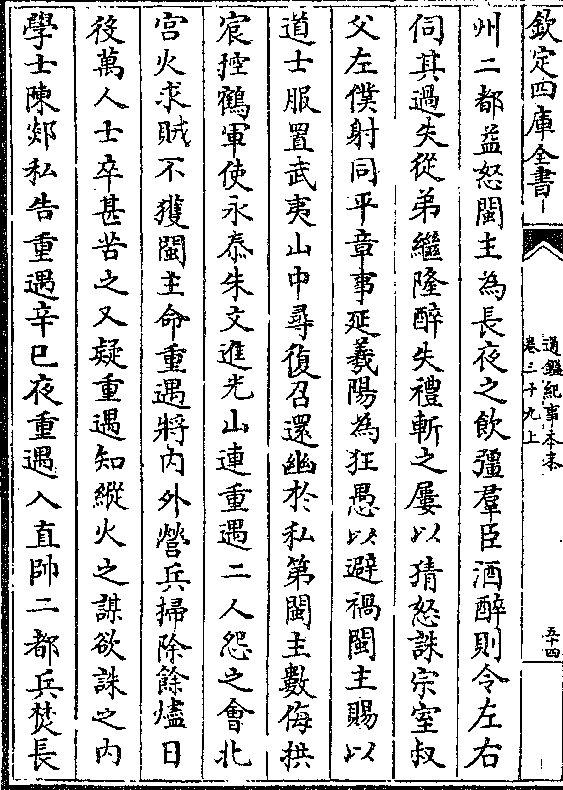 欽定四庫全書
通鑑紀事本末
卷三十九上
五十四
州二都益怒閩主為長夜之飲彊羣臣酒醉則令左右
伺其過失從弟繼隆醉失禮斬之屢以猜怒誅宗室叔
父左僕射同平章事延羲陽為狂愚以避禍閩主賜以
道士服置武夷山中尋復召還幽於私第閩主數侮拱
宸控鶴軍使永泰朱文進光山連重遇二人怨之會北
宫火求賊不獲閩主命重遇將内外營兵掃除餘燼日
役萬人士卒甚苦之又疑重遇知縱火之謀欲誅之内
學士陳郯私告重遇辛巳夜重遇入直帥二都兵焚長